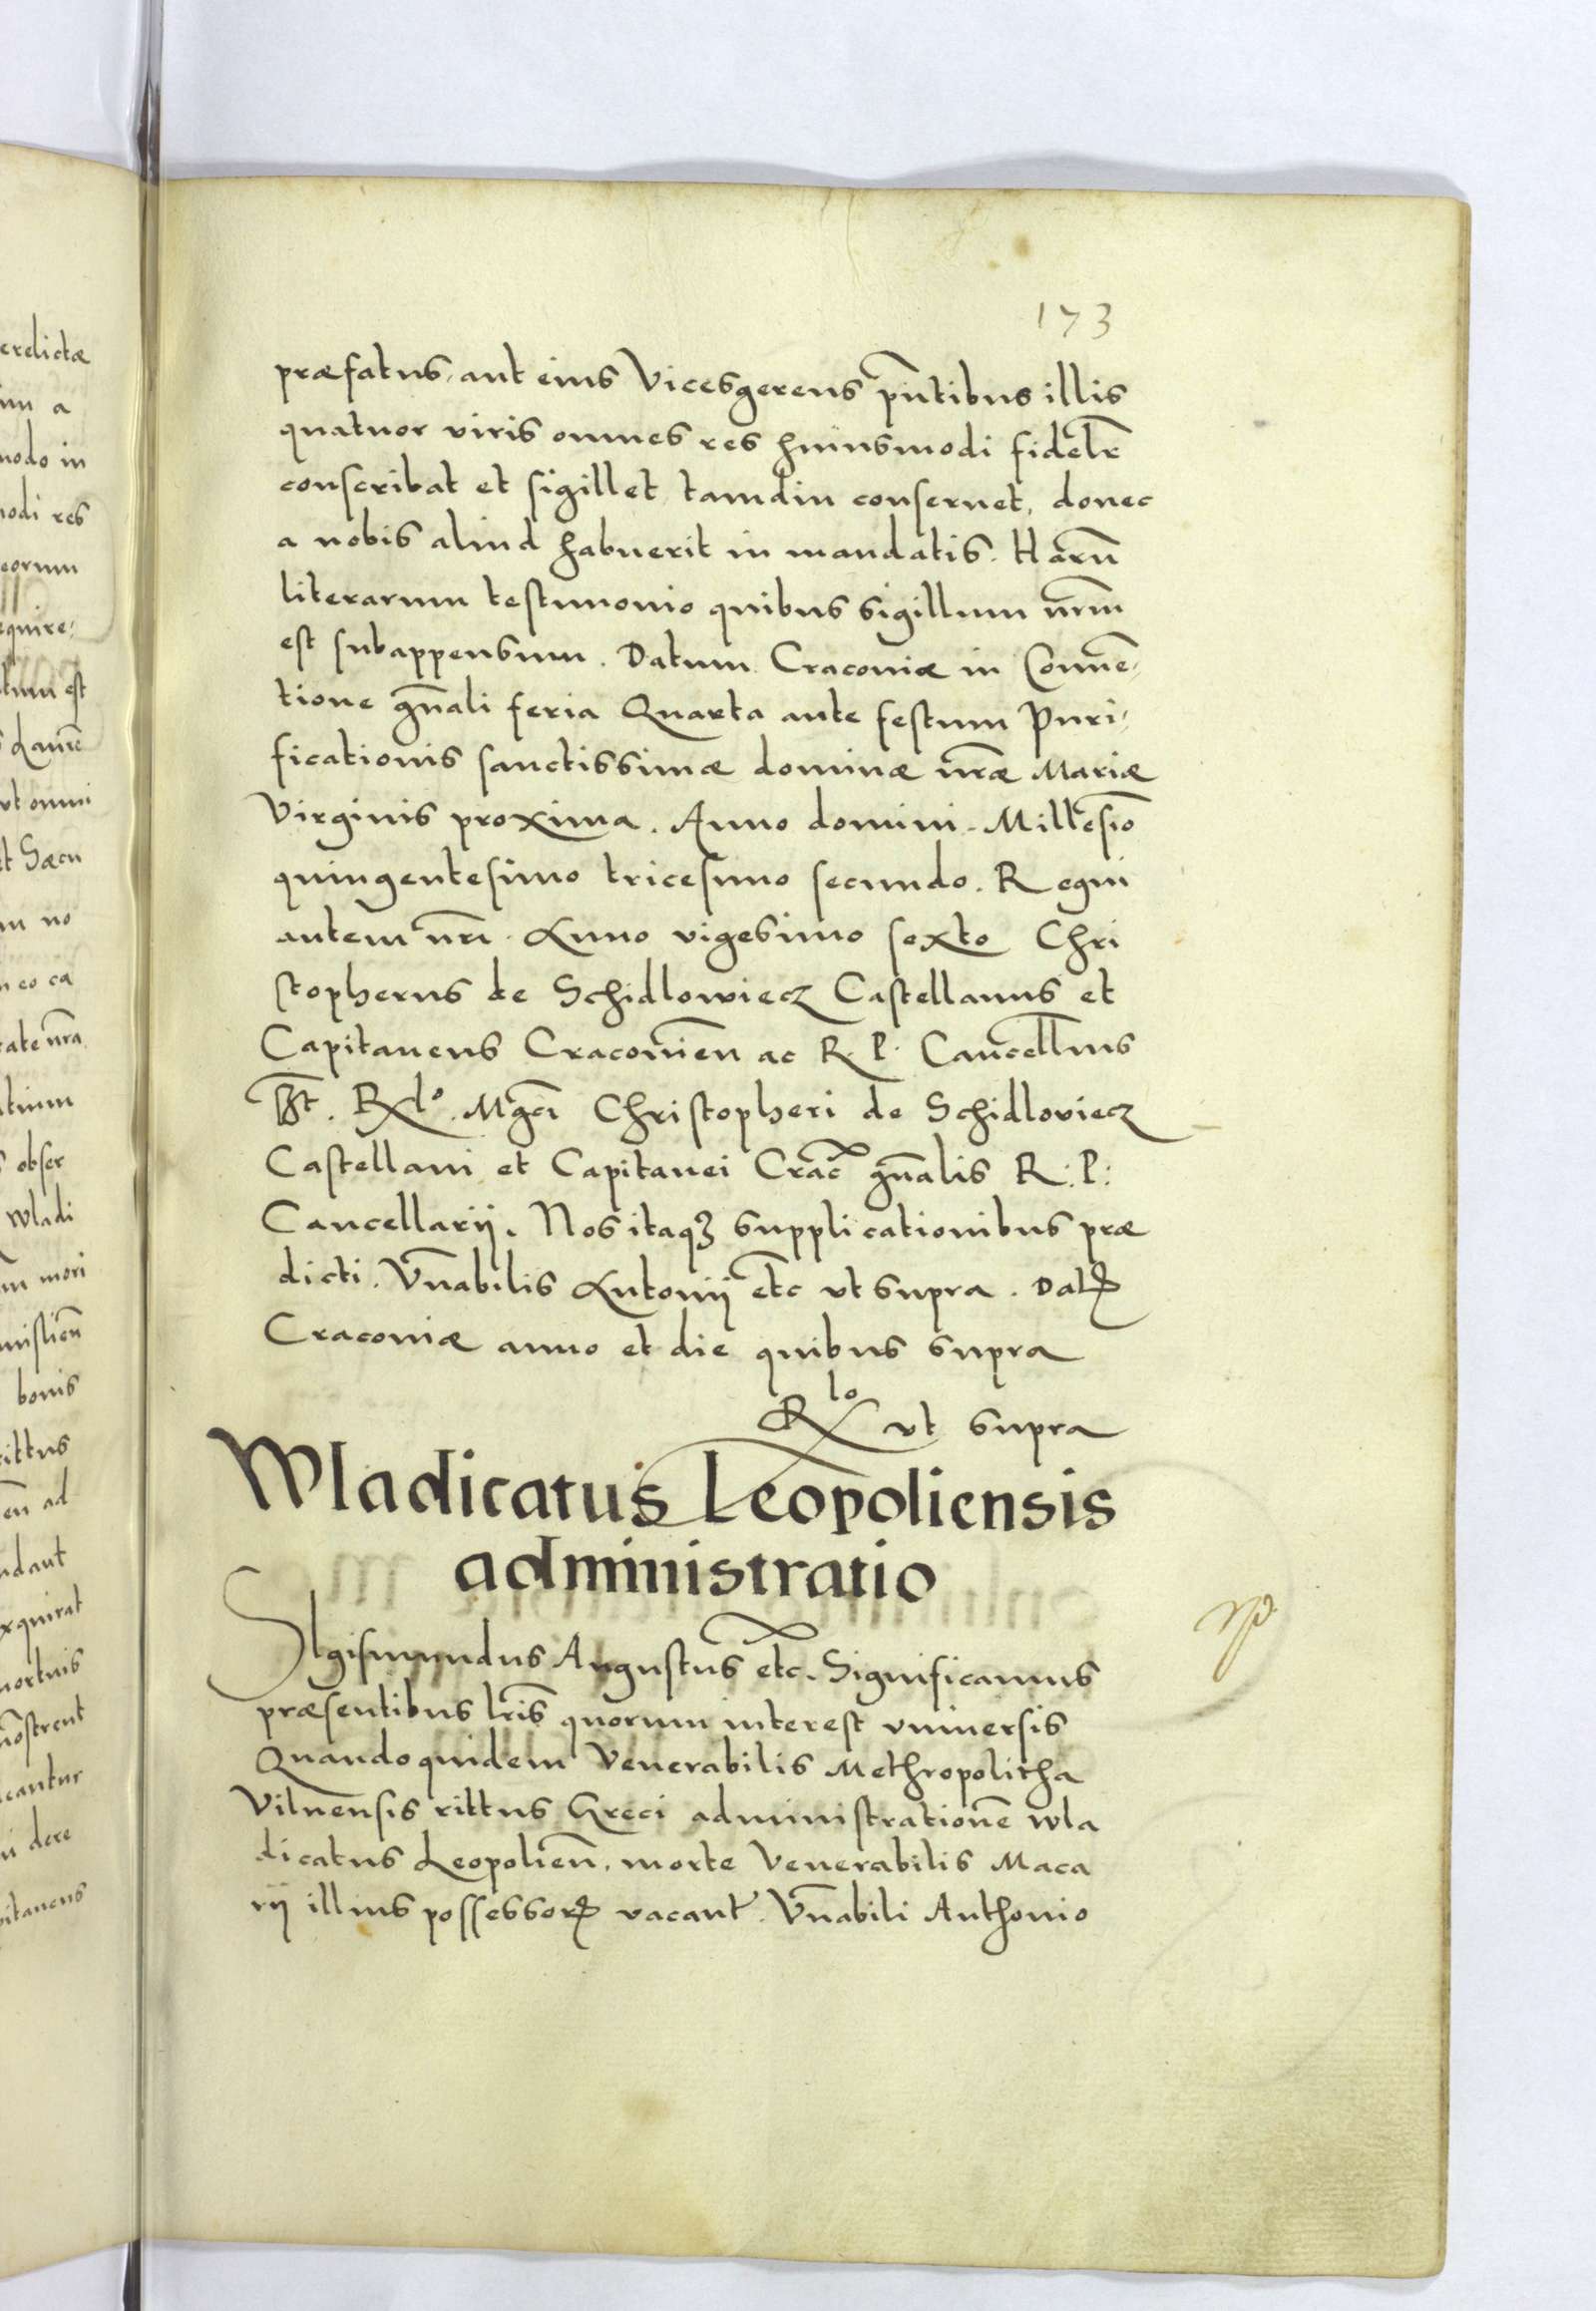 173
præfatus, aut eius Vicesgerens pn̄tibus illis
quatuor viris omnes res huiusmodi fidelr̄
conscribat et sigillet tamdiu conseruet, donec
a nobis aliud habuerit in mandatis. Harū
literarum testimonio quibus sigillum nr̄m
est subappensum. Datum Cracoviæ in Conuē-
tione gn̄ali feria Quarta ante festum Puri-
ficationis sanctissimæ dominæ nr̄æ Mariæ
Virginis proxima. Anno domini. Millesīo
quingentesimo tricesimo secundo. Regni
autem nr̄i Anno vigesimo sexto Chri
stopherus de Schidlowiecz Castellanus et
Capitaneus Cracovien̄ ac R. P. Cancell̄ius
s̄st. Rlo. Mgcī Christopheri de Schidloviecz
Castellani et Capitanei Crac̄ gn̄alis R: P:
Cancellarij. Nos itaqȝ supplicationibus præ
dicti. Vn̄abilis Antonij etc̄ vt supra. Datꝭ
Cracoviæ anno et die quibus supra
Rlo vt supra
Wladicatus Leopoliensis
administratio
SIgismundus Augustus etc̄. Significamus
præsentibus lr̄is quorum interest vniuersis
Quandoquidem Venerabilis Methropolitha
Vilnēnsis rittus Greci administrationē wla
dicatus Leopolien̄. morte Venerabilis Maca
rij illius possessorꝭ vacant̄. Vn̄abili Anthonio
erelictæ
um a
modo in
modi res
eorum
equire:
tum est
vt omni
et Sæcu
m no
n eo ca
tate nr̄a
obser
wladi
m mori
bonis
rittus
ēn ad
ndant
xquirat
mortuis
mōstrent
cantur
ni dere
pitaneus